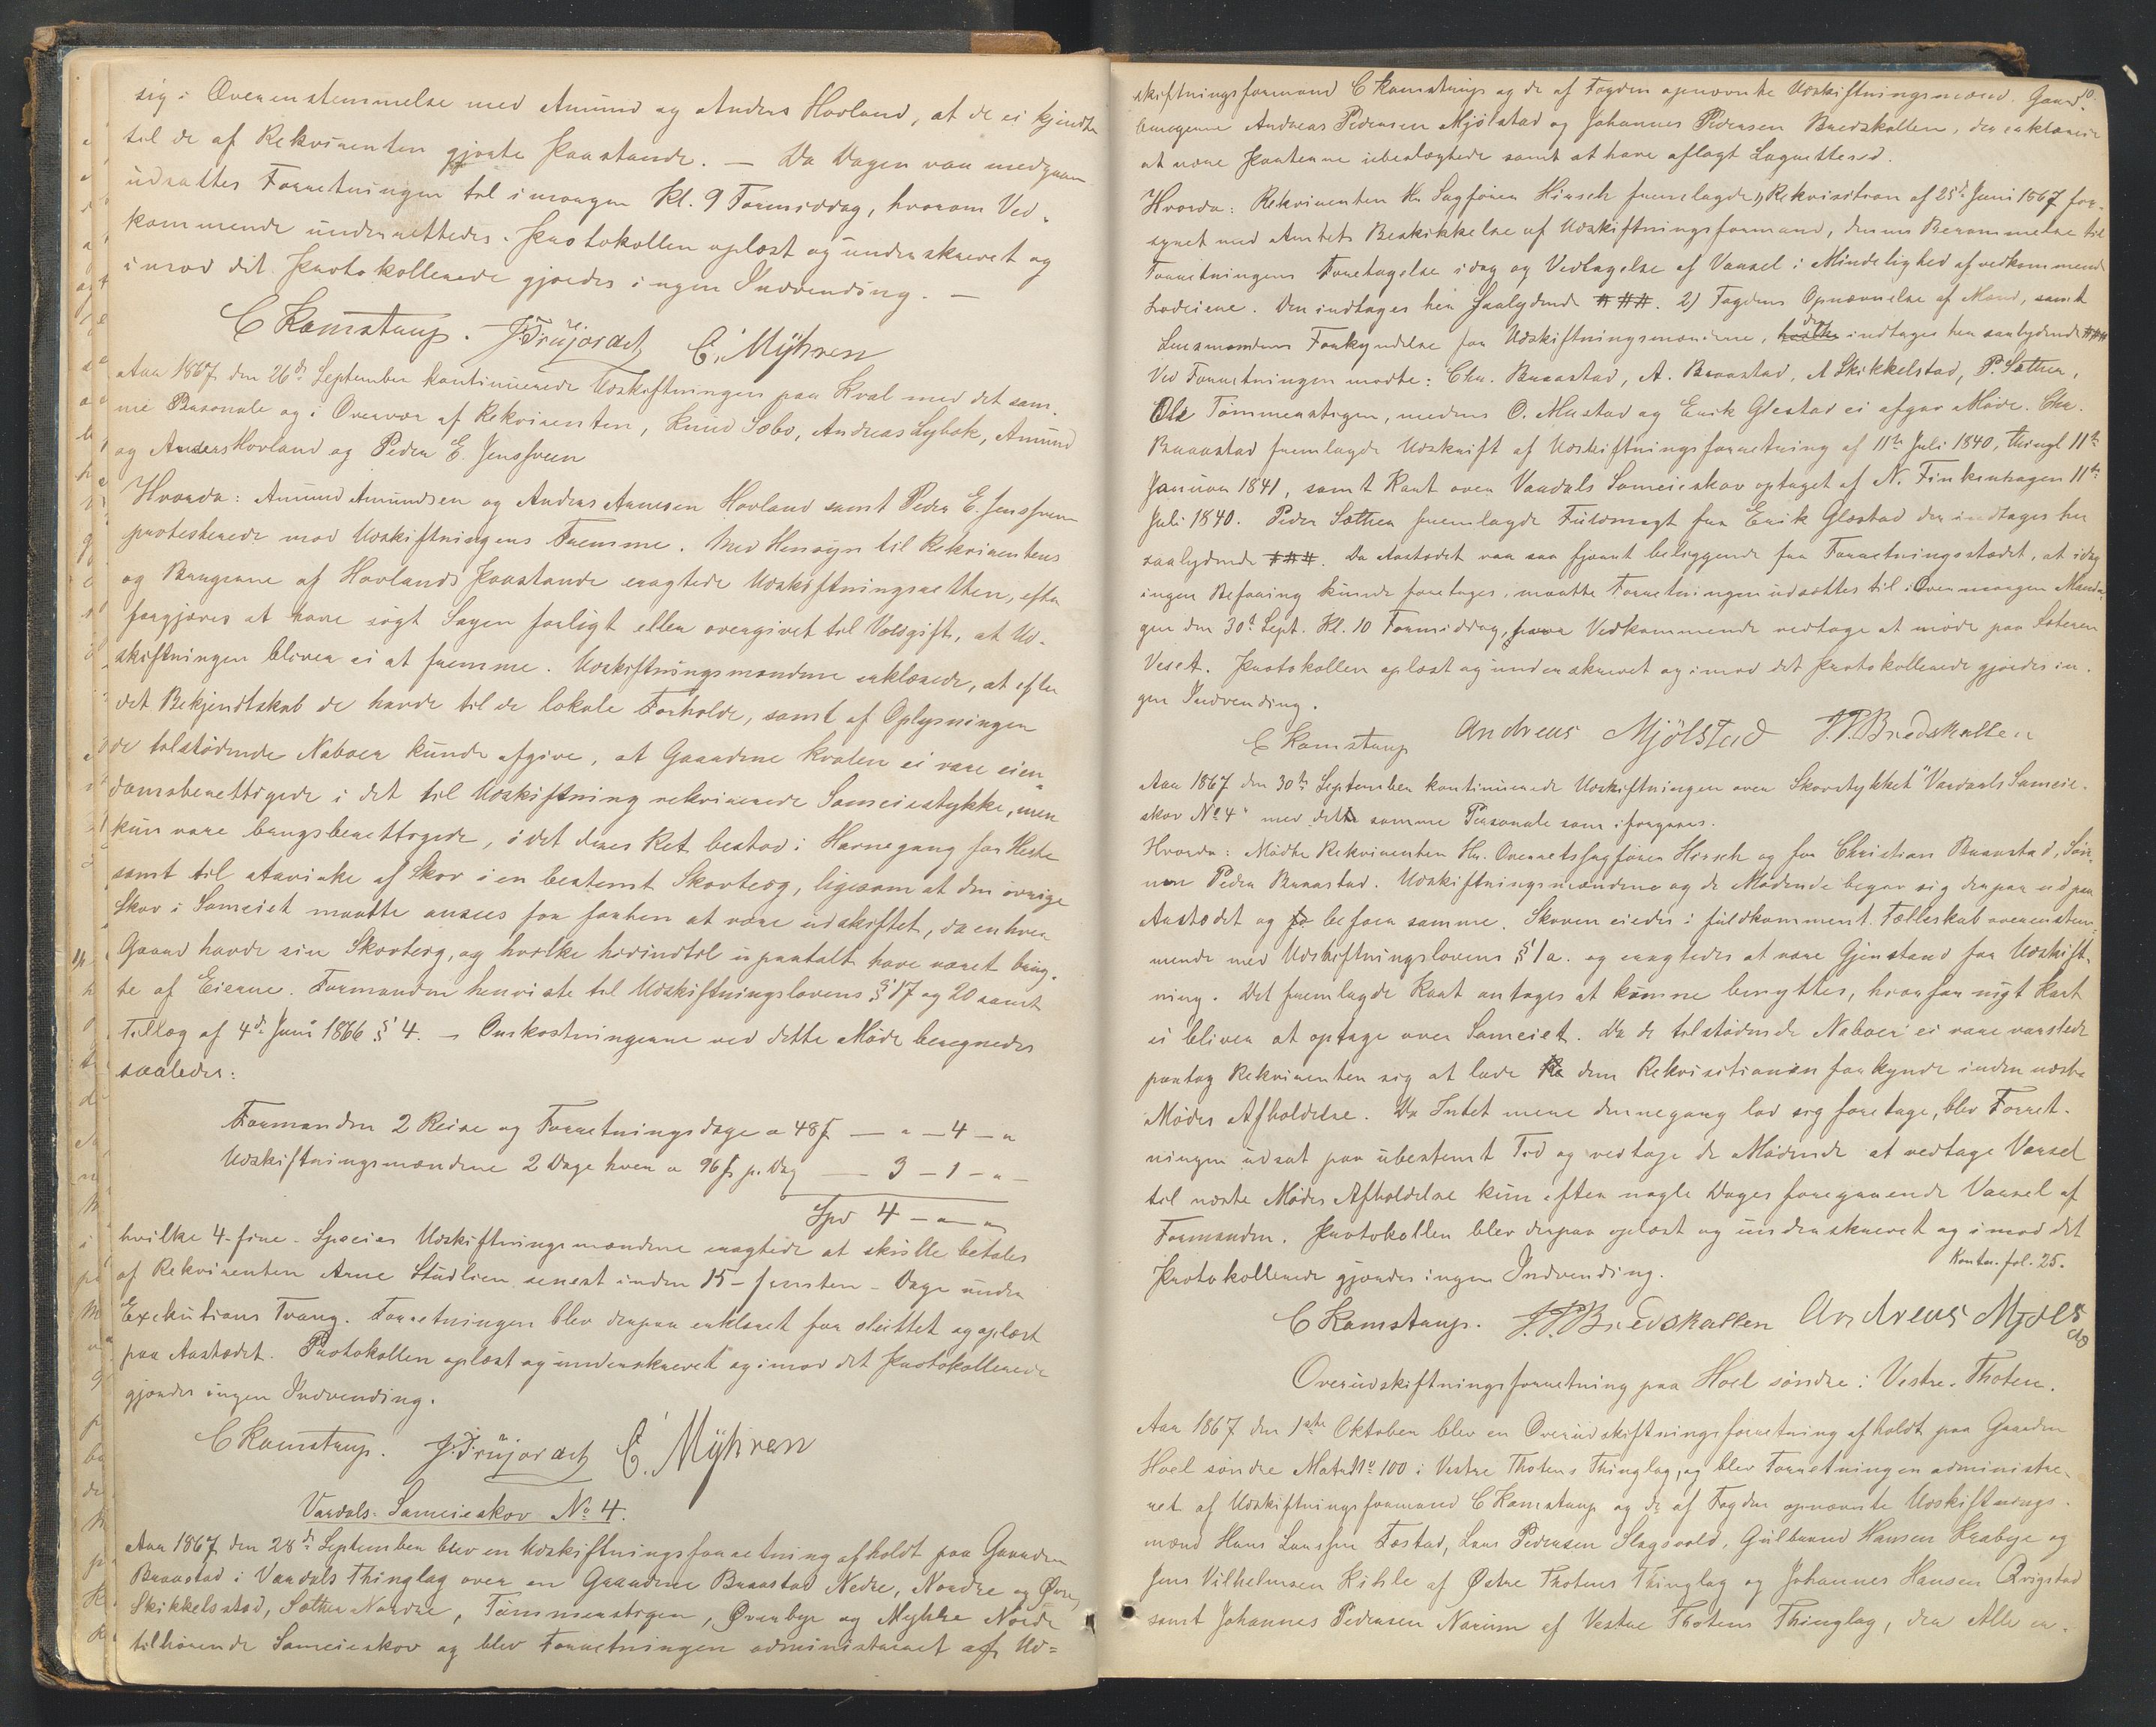 sig i Overenstemmelse med Amund og Anders Hovland, at de ei kjendte
til de af Rekvirenten gjorte Paastande. — Da Dagen var medgaaen
udsattes Forretningen til imorgen Kl. 9 Formiddag, hvorom Ved-
kommende underrettedes. Protokollen oplæst og underskrevet og
imod det Protokollerede gjordes ingen Indvending. —
C Komstrup. J. Trujordet C. Mÿhren
Aar 1867 den 26de September kontinuerede Udskiftningen paa Kval med det sam-
me Personale og i Overvær af Rekvirenten, Knud Sebo, Andreas Lybæk, Amund
og Anders Hovland og Peder E. Jenssveen
Hvorda: Amund Amundsen og Anders Arnesen Hovland samt Peder E. Jenssveen
protesterede mod Udskiftningens Fremme. Med Hensyn til Rekvirentens
og Brugerne af Hovlands Paastande eragtede Udskiftningsretten, efter
forgjæves at have søgt Sagen forligt eller overgivet til Voldgift, at Ud-
skiftningen bliver ei at fremme. Udskiftningsmændene erklærede, at efter
det Bekjendtskab de havde til de lokale Forholde, samt af Oplysningen
de tilstødende Naboer kunde afgive, at Gaardene Kvalen ei vare eien-
domsberettigede i det til Udskiftning rekvirerede Sameiestykke, men
kun vare brugsberettigede, idet deres Ret bestod i Havnegang for Heste
samt til Avvirke af Skov i en bestemt Skovteig, ligesom at den øvrige
Skov i Sameiet maatte ansees for forhen at være udskiftet, da enhver
Gaard havde sin Skovteig, og hvilke hidindtil upaatalt have været brug-
te af Eierne. Formanden henviste til Udskiftningslovens § 17 og 20 samt
Tillæg af 4de Juni 1866 § 4. — Omkostningerne ved dette Møde beregnedes
saaledes:
Formanden 2 Reise og Forretningsdage a 48 ß — " — 4 — "
Udskiftningsmændene 2 Dage hver a 96 ß p. Dag — 3 — 1 — " —
Spd 4 — " — "
hvilke 4-fire- Species Udskiftningsmændene eragtede at skulle betales
af Rekvirenten Arne Studlien senest inden 15-femten- Dage under
Exekutions Tvang. Forretningen blev derpaa erklæret for sluttet og oplæst
paa Aastedet. Protokollen oplæst og underskrevet og imod det Protokollerede
gjordes ingen Indvending.
C Komstrup. J. Trujordet C. Mÿhren
Vardals-Sameieskov No 4.
Aar 1867 den 28de September blev en Udskiftningsforretning afholdt paa Gaarden
Braastad i Vardals Thinglag over en Gaardene Braastad Nedre, Nordre og Øvre,
Skikkelsstad, Sæther Nordre, Tømmerstigen, Øverbye og Mykhe Nordre
tilhørende Sameieskov og blev Forretningen administreret af Ud=
skiftningsformand C Komstrup og de af Fogden opnævnte Udskiftningsmænd. Gaard-
brugerne Andreas Pedersen Mjølstad og Johannes Pedersen Bredskallen, der erklærede
at være Parterne ubeslægtede samt at have aflagt Lagrettesed.
Hvorda: Rekvirenten Hr. Sagfører Hirsch fremlagde 1) Rekvisition af 25de Juni 1867 for-
synet med Amtets Beskikkelse af Udskiftningsformand, dennes Berammelse til
Forretningens Foretagelse idag og Vedtagelse af Varsel i Mindelighed af vedkommende
Lodeiere. Den indtages her saalydende # ##. 2) Fogdens Opnævnelse af Mænd, samt
Lensmandens Forkyndelse for Udskiftningsmændene, der indtages her saalydende ###
Ved Forretningen mødte: Chr. Braastad, A. Braastad, A Skikkelstad, P. Sæther,
Ole Tømmerstigen, medens O. Mustad og Erik Glestad ei afgav Møde. Chr.
Braastad fremlagde Udskrift af Udskiftningsforretning af 11te Juli 1840, thinglt 11te
Januar 1841, samt Kart over Vardals Sameieskov optaget af N. Finkenhagen 11te
Juli 1840. Peder Sæther fremlagde Fuldmagt fra Erik Glæstad der indtages her
saalydende ###. Da Aastedet var saa fjernt beliggende fra Forretningsstedet, at idag
ingen Befaring kunde foretages, maatte Forretningen udsættes til iovermorgen Manda-
gen den 30te Sept. Kl. 10 Formiddag, Vedkommende vedtage at møde paa Sæteren
Veset. Protokollen oplæst og underskrevet og imod det Protokollerede gjordes in-
gen Indvending.
C Komstrup Andreas Mjölstad J. P. Bredskallen
Aar 1867 den 30te September kontinuerede Udskiftningen over Skovstykket "Vardals Sameie-
skov No 4" med det samme Personale som i forgaars.
Hvorda: Mødte Rekvirenten Hr. Overretssagfører Hirsch og for Christian Braastad, Søn-
nen Peder Braastad. Udskiftningsmændene og de Mødende begav sig derpaa ud paa
Aastedet og befoer samme. Skoven eiedes i fuldkomment Fælleskab overenstem-
mende med Udskiftningslovens § 1 a. og eragtedes at være Gjenstand for Udskift-
ning. Det fremlagde Kart antages at kunne benyttes, hvorfor nyt Kart
ei bliver at optage over Sameiet. Da de tilstødende Naboer ei vare varslede
paatog Rekvirenten sig at lade dem Rekvisitionen forkynde inden næste
Mødes Afholdelse. Da Intet mere dennegang lod sig foretage, blev Forret-
ningen udsat paa ubestemt Tid og vedtage de Mødende at vedtage Varsel
til næste Mødes Afholdelse kun efter nogle Dages foregaaende Varsel af
Formanden. Protokollen blev derpaa oplæst og underskrevet og imod det
Protokollerede gjordes ingen Indvending.
Kontn. fol. 25.
C Komstrup. J. P. Bredskallen Andreas Mjøls
Overudskiftningsforretning paa Hoel søndre i Vestre-Thoten.
Aar 1867 den 1ste Oktober blev en Overudskiftningsforretning afholdt paa Gaarden
Hoel søndre Matr No 100 i Vestre Thotens Thinglag, og blev Forretningen administre-
ret af Udskiftningsformand C Komstrup og de af Fogden opnævnte Udskiftnings-
mænd Hans Larssen Fæstad, Lars Pedersen Slagsvold, Gulbrand Hansen Krabye og
Jens Vilhelmsen Kihle af Østre Thotens Thinglag og Johannes Hansen Qvigstad
samt Johannes Pedersen Narum af Vestre Thotens Thinglag, der Alle er-